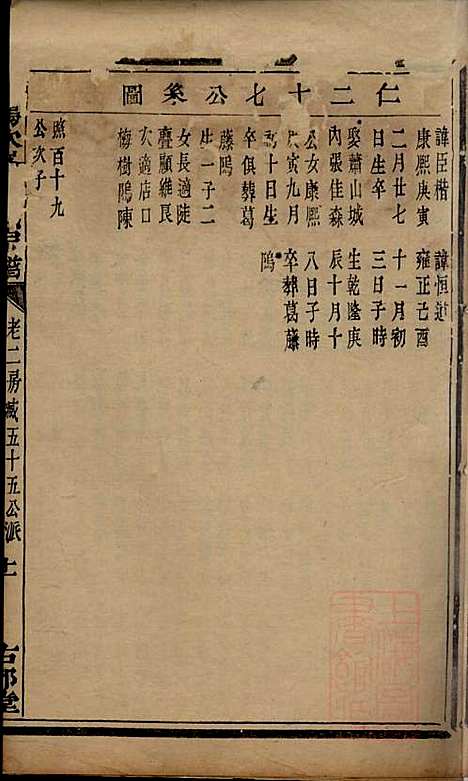 仁二十七公系圖
諱臣楷
康熙庚寅
二月廿七
日生卒
娶蕭山城
內張佳森
公女康熙
寅九月
十日生
卒俱葬葛
藤鳴
生一子二
女長適徒
疊顧維良
次適店口
梅樹鳴陳
諱恒道
雍正己酉
十一月初
三日子時
生乾隆庚
辰十月十
八日子時
卒葬葛藤
鳴
照百十九
公次子
譜
老二房咸五十五公派